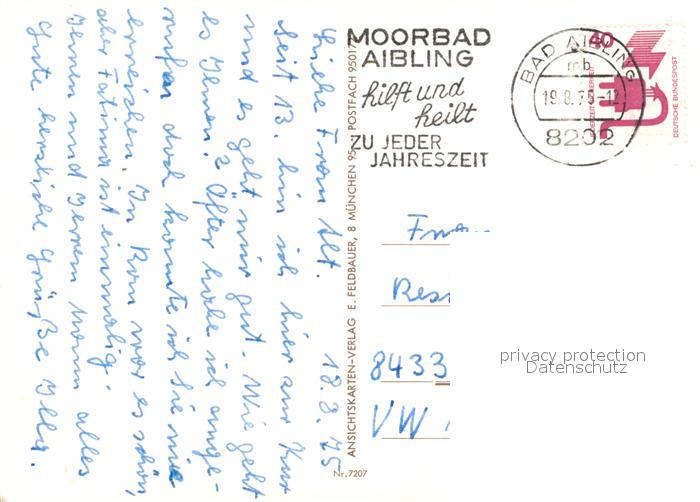 Liebe Frau Alt. 18.8.75
Seit 13. bin ich hier zur Kur
und es geht mir gut. Wie geht
es Ihnen? Öfter habe ich ange-
rufen doch konnte ich Sie nie
erreichen. In Rom war es schön,
aber Fatima ist einmalig.
Ihnen und Ihrem Mann alles
Gute herzliche Grüße
ANSICHTSKARTEN-VERLAG E. FELDBAUER, 8 MÜNCHEN 95, POSTFACH 95017
Nr. 7207
MOORBAD
AIBLING
hilft und
heilt
ZU JEDER
JAHRESZEIT
BAD AIBLING
mb
19.8.75-12
8202
40
DEUTSCHE BUNDESPOST
8433
VW
privacy protection
Datenschutz